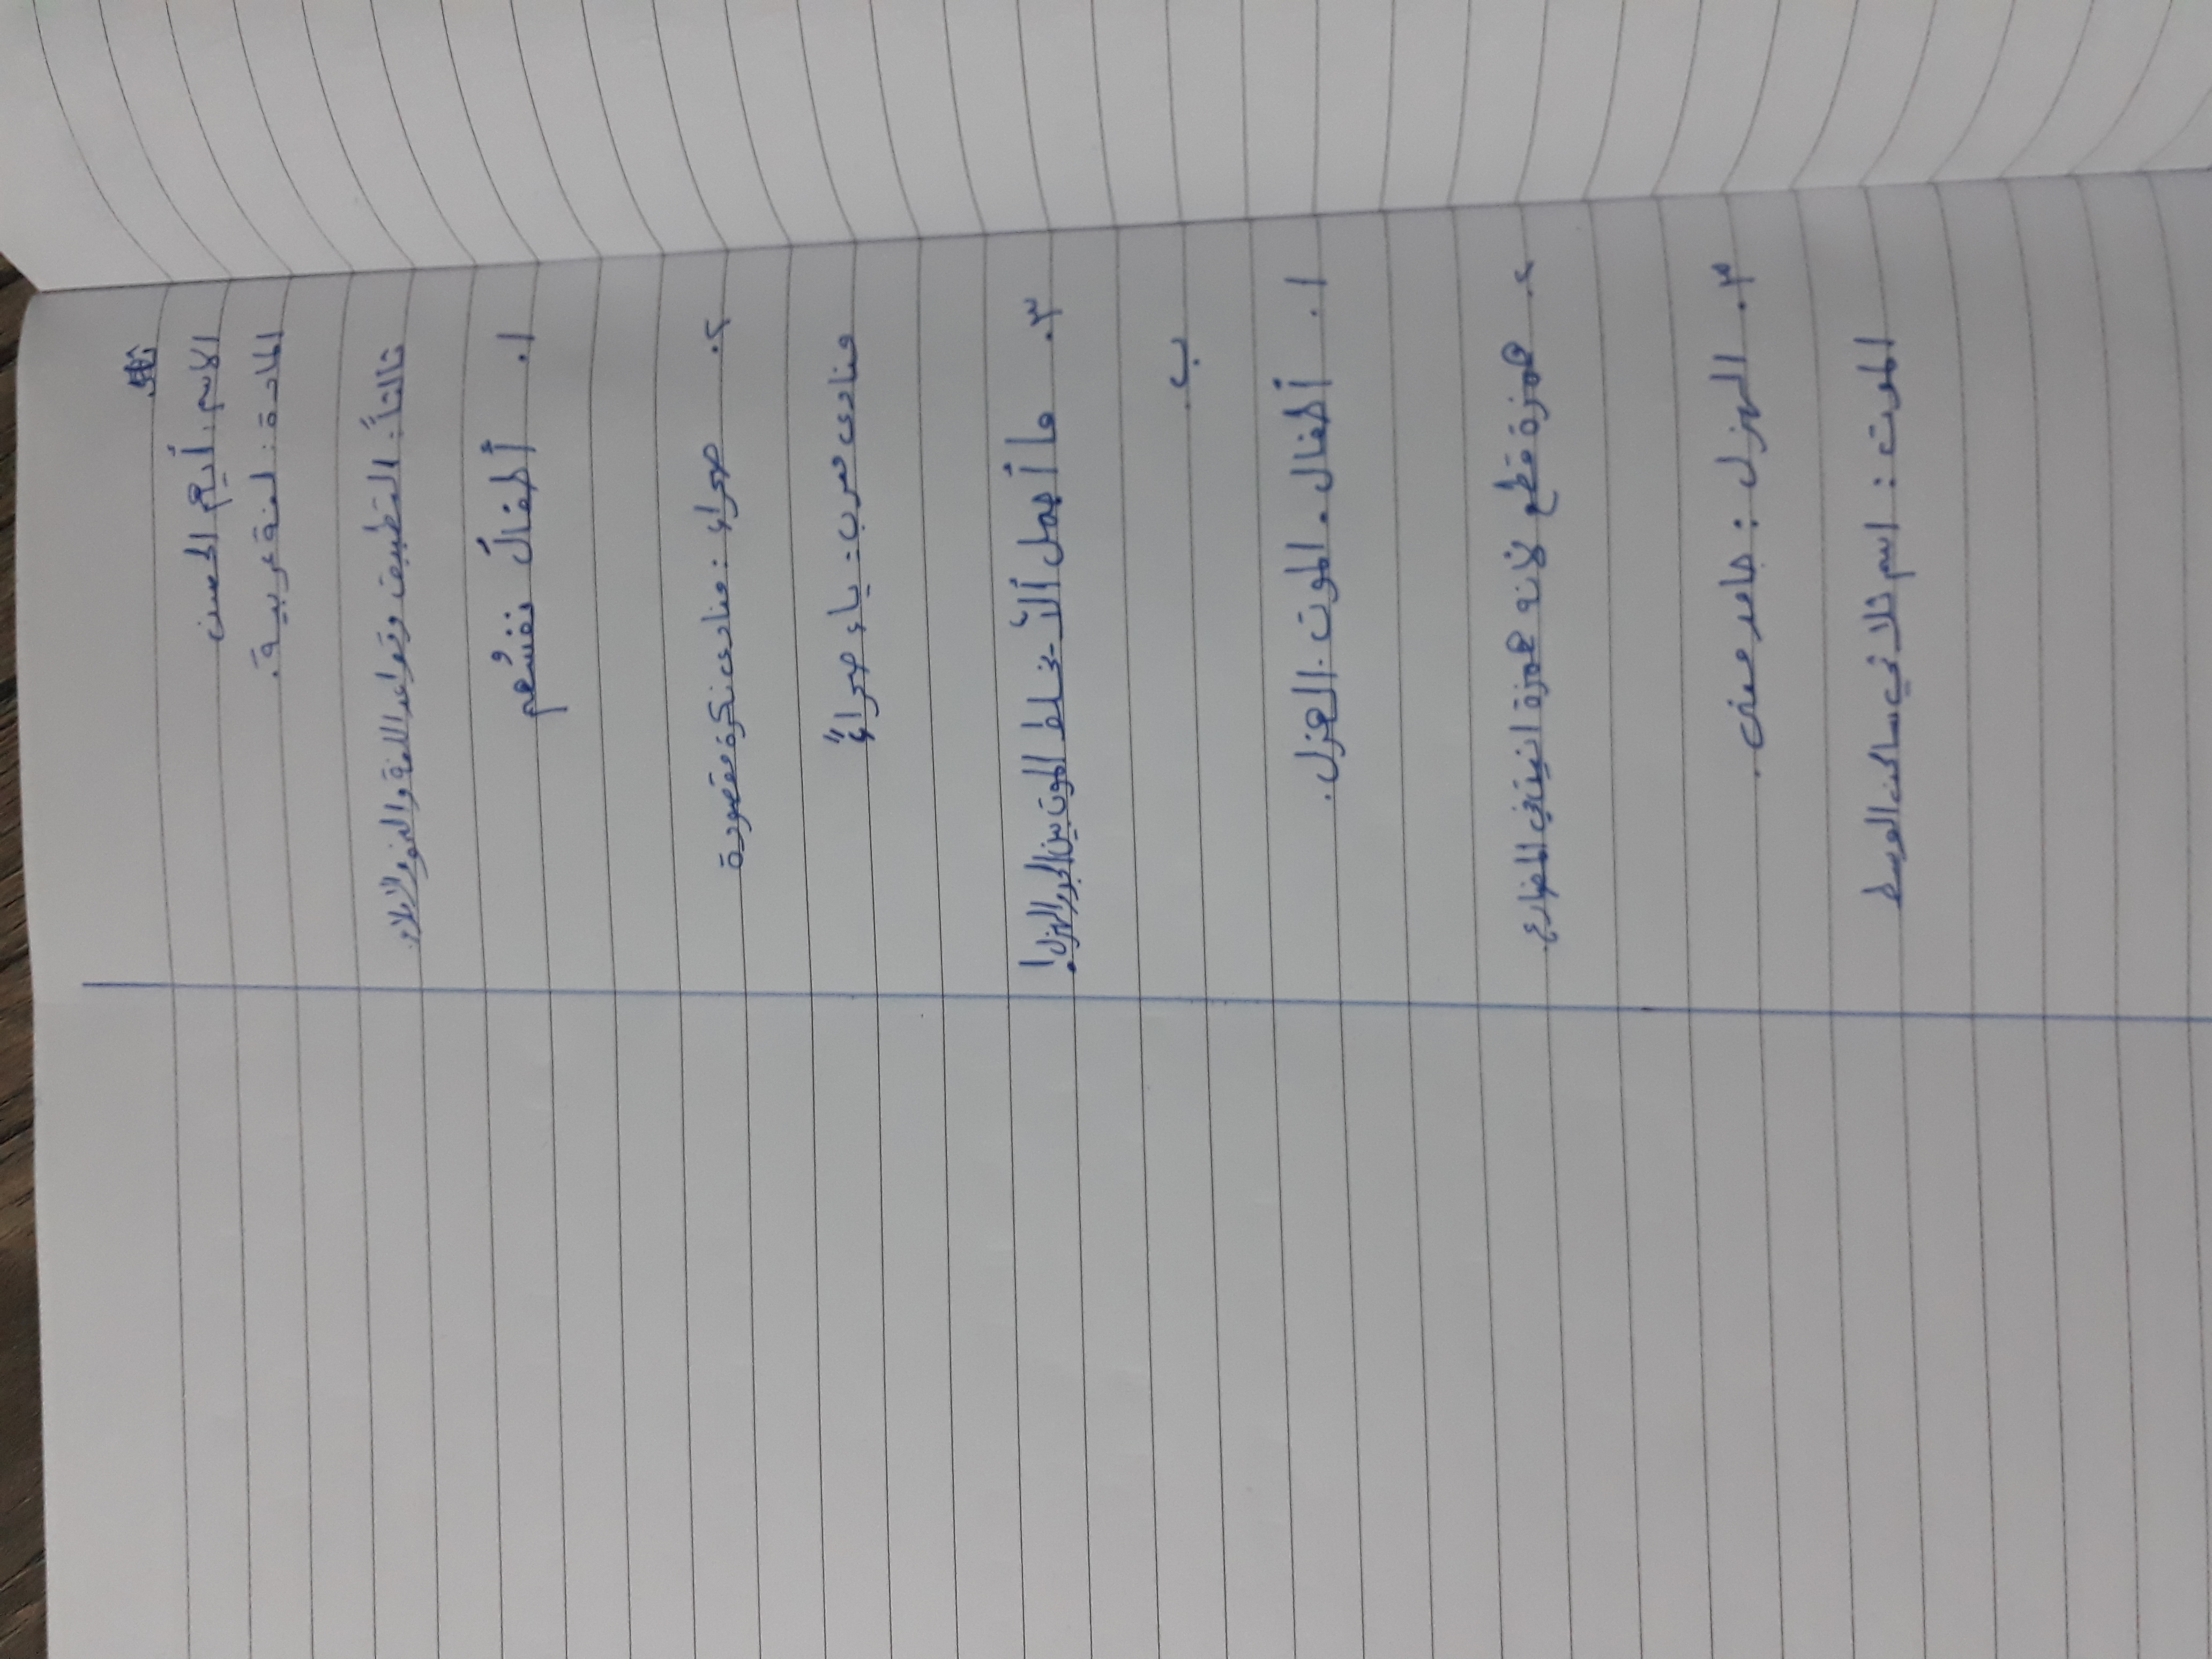 الاسم: أيهم الحسن
المادة: لغة عربية.
ثالثاً: التطبيق وقواعد اللغة والنحو والإملاء.
١. أطفالَ نفسُهم
٢. صحراء: منادى نكرة مقصودة
منادى معرب: يا صحراءً
٣. ما أجمل ألّا نخلط الموت بين الجد والهزل!
ب
١. أطفال. الموت. الهزل.
٢. همزة قطع لأنه همزة انيت في المضارع.
٣. الهزل: جامد معنى.
الموت: اسم ثلاثي ساكن الوسط